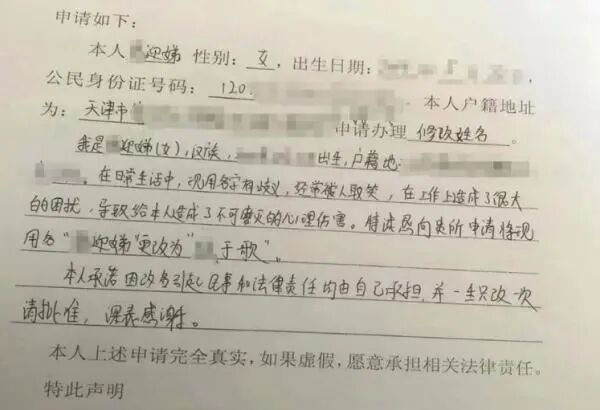 申请如下:
本人 迎娣 性别: 女,出生日期:
公民身份证号码: 120 本人户籍地址
为: 天津市 申请办理 修改姓名 。
我是 迎娣(女),汉族, 出生,户籍地:
。在日常生活中,现用名字有歧义,经常被人取笑,在工作上造成了很大
的困扰,导致给本人造成了不可磨灭的心理伤害。特此 向贵所申请将现
用名“ 迎娣”更改为“ 于歌”。
本人承诺因改名引起民事和法律责任均由自己承担,并一生只改一次
请批准,深表感谢。
本人上述申请完全真实,如果虚假,愿意承担相关法律责任。
特此声明